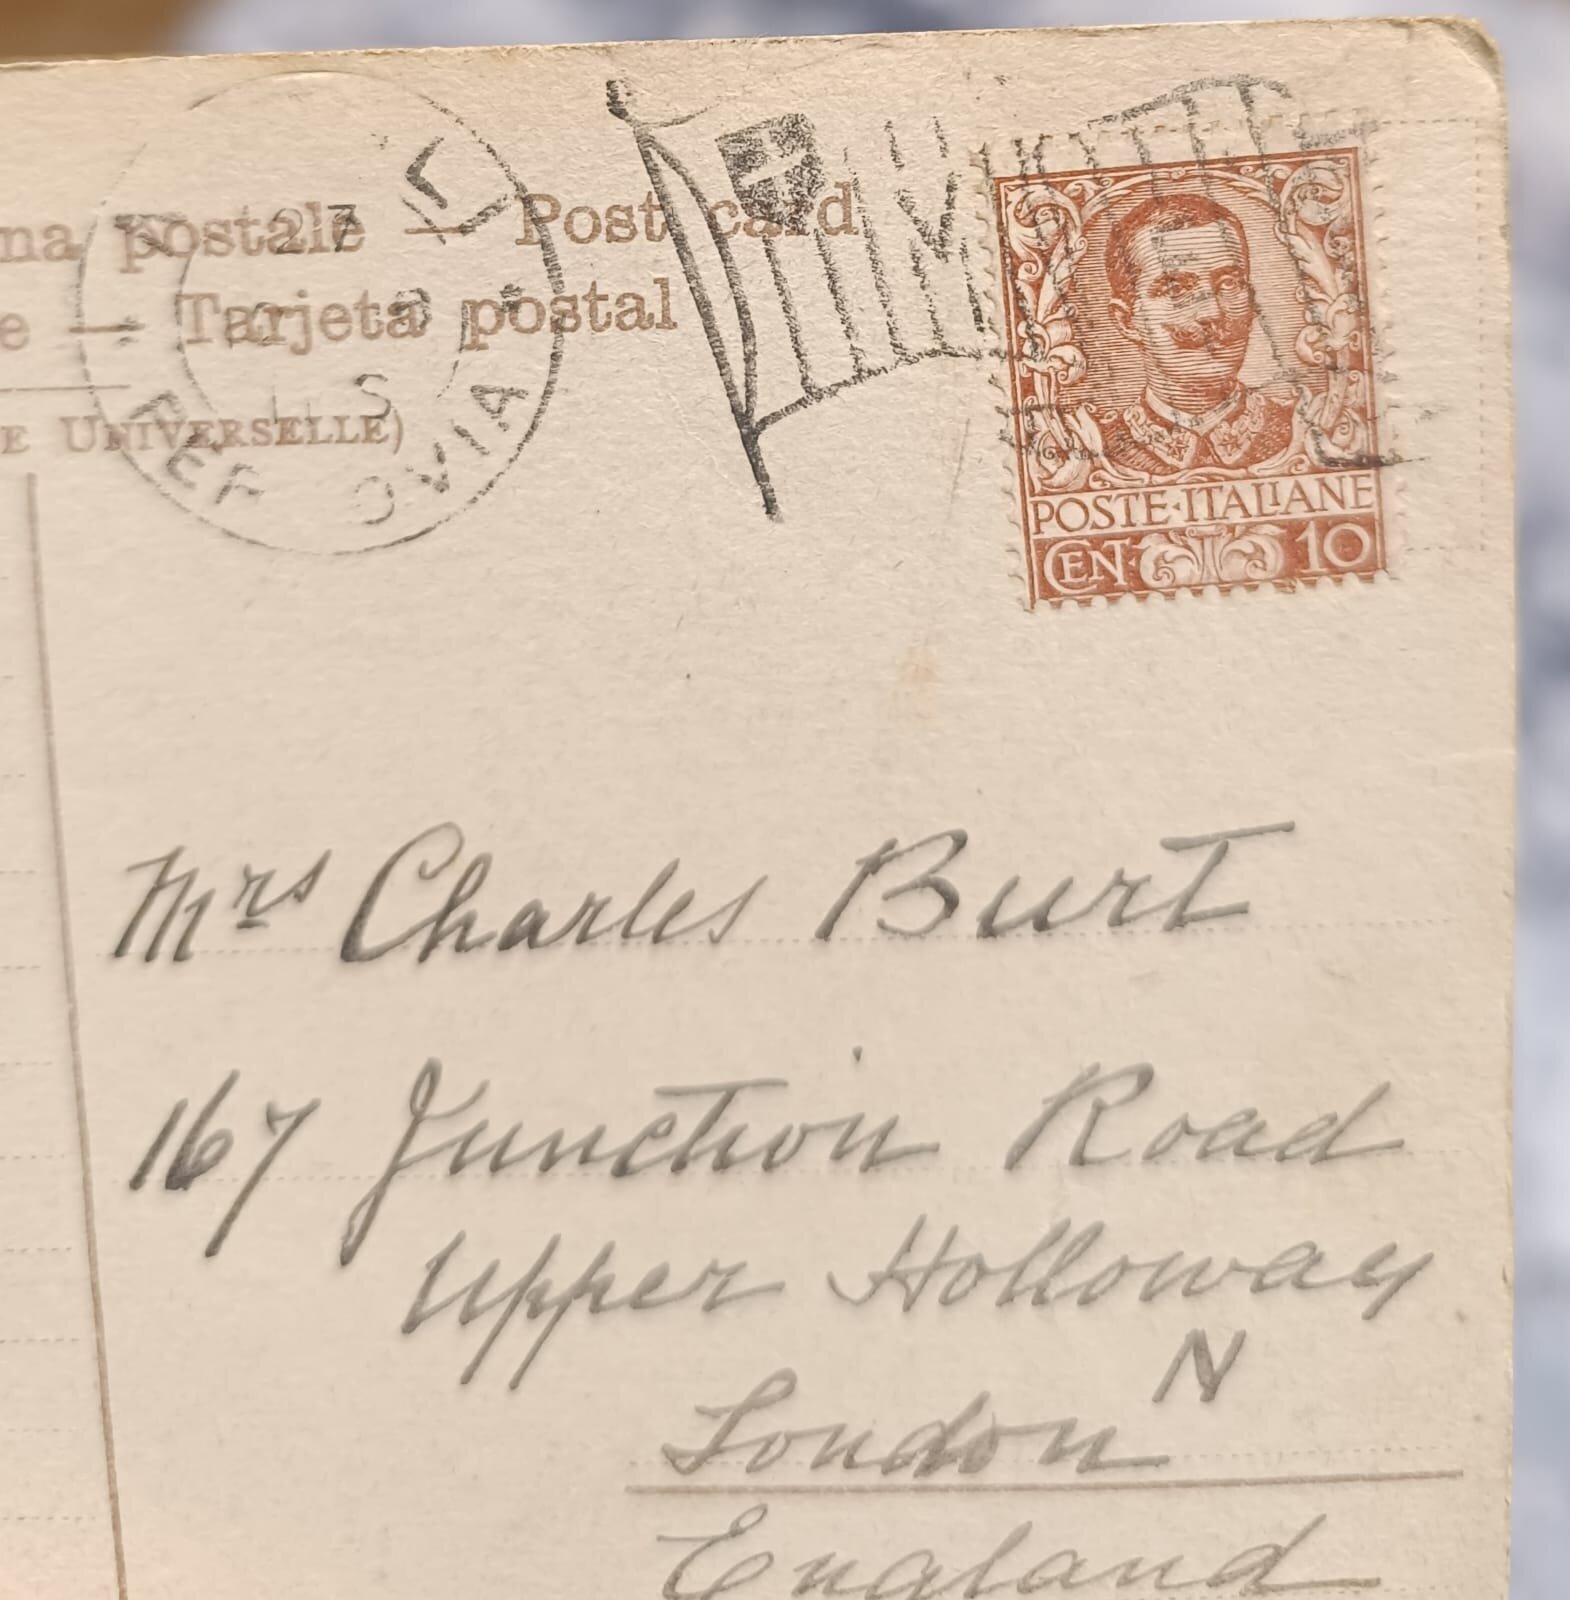 na postale — Post card
e — Tarjeta postal
E UNIVERSELLE)
27
S
FER OVIA
POSTE·ITALIANE
CEN· 10
Mrs Charles Burt
167 Junction Road
Upper Holloway
N
London
England